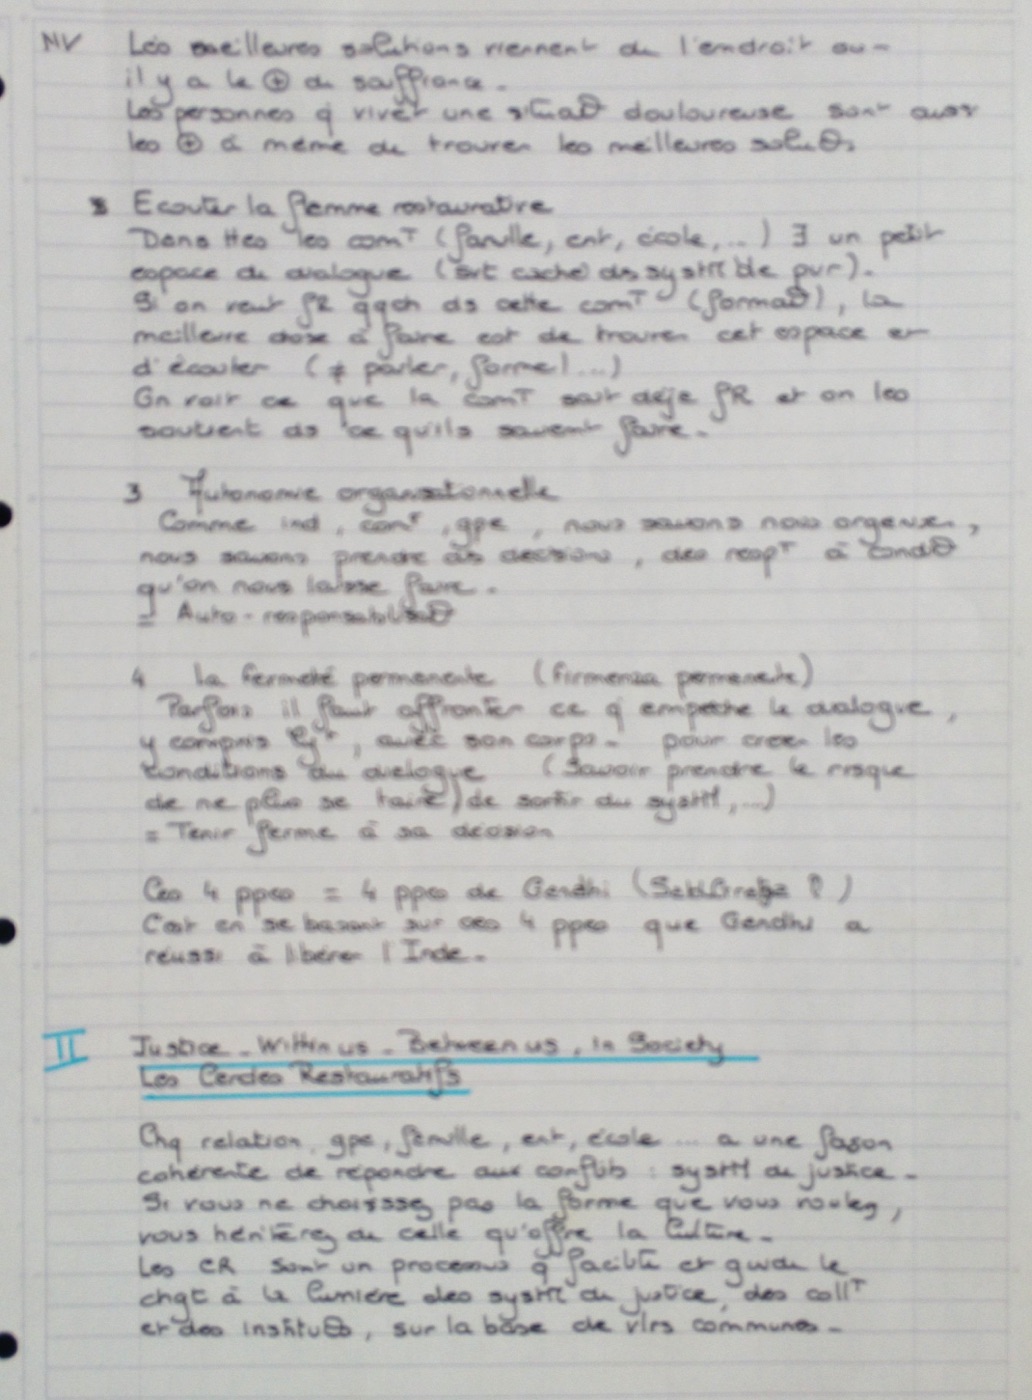 NV Les meilleures solutions viennent de l'endroit ou
il y a le ⊕ de souffrance.
Les personnes q vivet une situaθ douloureuse sont aussi
les ⊕ à même de trouver les meilleures soluθs
Ecouter la flemme restaurative
Dans ttes les comT (famille, ent, école, ...) ∃ un petit
espace de dialogue (svt caché ds systM de pvr).
Si on veut fR qqch ds cette comT (formaθ), la
meilleure chose à faire est de trouver cet espace et
d'écouter (≠ parler, former ...)
On voit ce que la comT sait déjà fR et on les
soutient ds ce qu'ils savent faire.
3 Autonomie organisationnelle
Comme ind, comT, gpe, nous savons nous organiser,
nous savons prendre des décisions, des respT à condiθ
qu'on nous laisse faire.
= Auto-responsabilisaθ
4 La fermeté permanente (firmenza permanente)
Parfois il faut affronter ce q empêche le dialogue,
y compris , avec son corps - pour créer les
conditions du dialogue (Savoir prendre le risque
de ne plus se taire, de sortir du systM, ...)
= Tenir ferme à sa décision
Ces 4 ppes = 4 ppes de Gandhi ( ? )
C'est en se basant sur ces 4 ppes que Gandhi a
réussi à libérer l'Inde.
II Justice - Within us - Between us, in Society
Les Cercles Restauratifs
Chq relation, gpe, famille, ent, école ... a une façon
cohérente de répondre aux conflits : systM de justice -
Si vous ne choisssez pas la forme que vous voulez,
vous hériterez de celle qu'offre la Culture -
Les CR sont un processus q facilite et guide le
chgt à la lumière des systM de justice, des collT
et des instituθs, sur la base de vlrs communes -